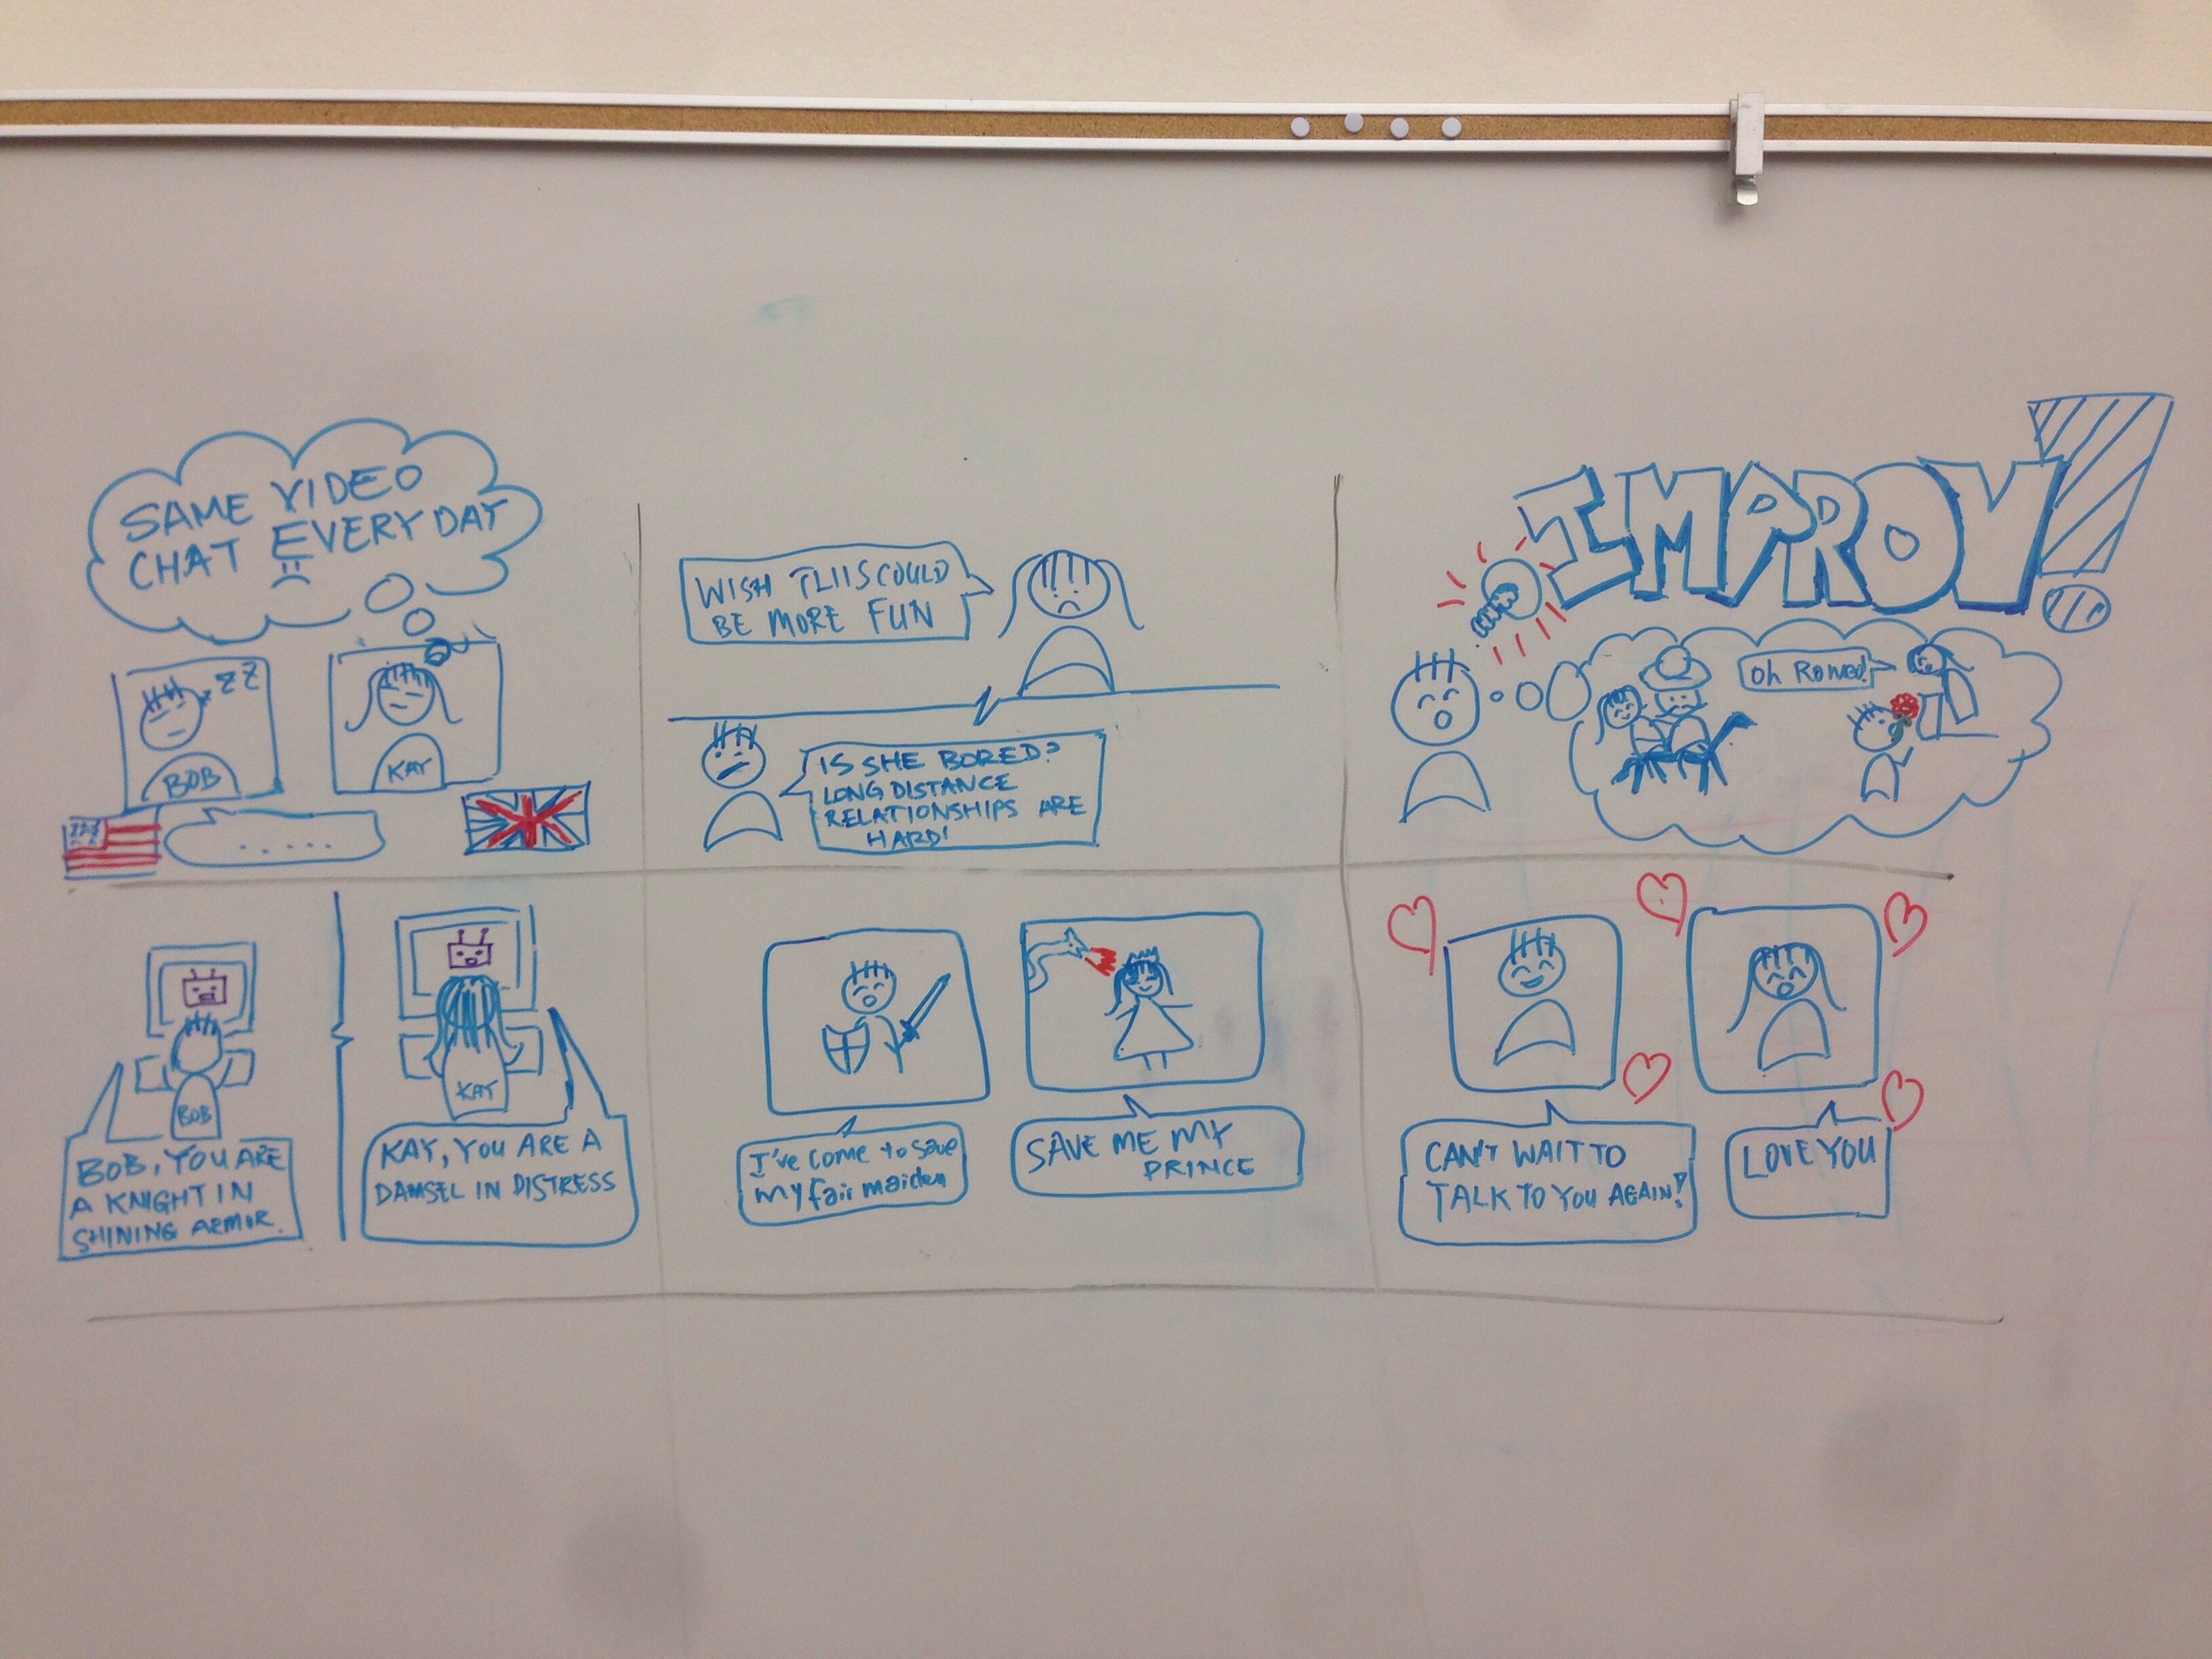 SAME VIDEO
CHAT EVERY DAY
ZZ
BOB
KAY
.....
WISH THIS COULD
BE MORE FUN
IS SHE BORED?
LONG DISTANCE
RELATIONSHIPS ARE
HARD!
IMPROV!
Oh Romeo!
BOB
BOB, YOU ARE
A KNIGHT IN
SHINING ARMOR.
KAY
KAY, YOU ARE A
DAMSEL IN DISTRESS
I've come to save
my fair maiden
SAVE ME MY
PRINCE
CAN'T WAIT TO
TALK TO YOU AGAIN!
LOVE YOU